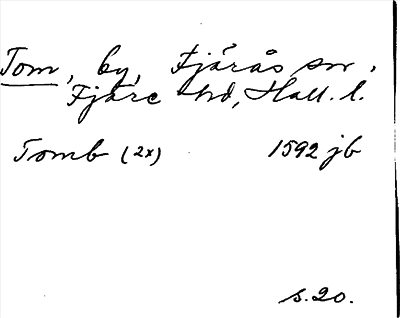 Tom, by, Fjärås sn,
Fjäre hd, Hall. l.
Tomb (2x) 1592 jb
s. 20.